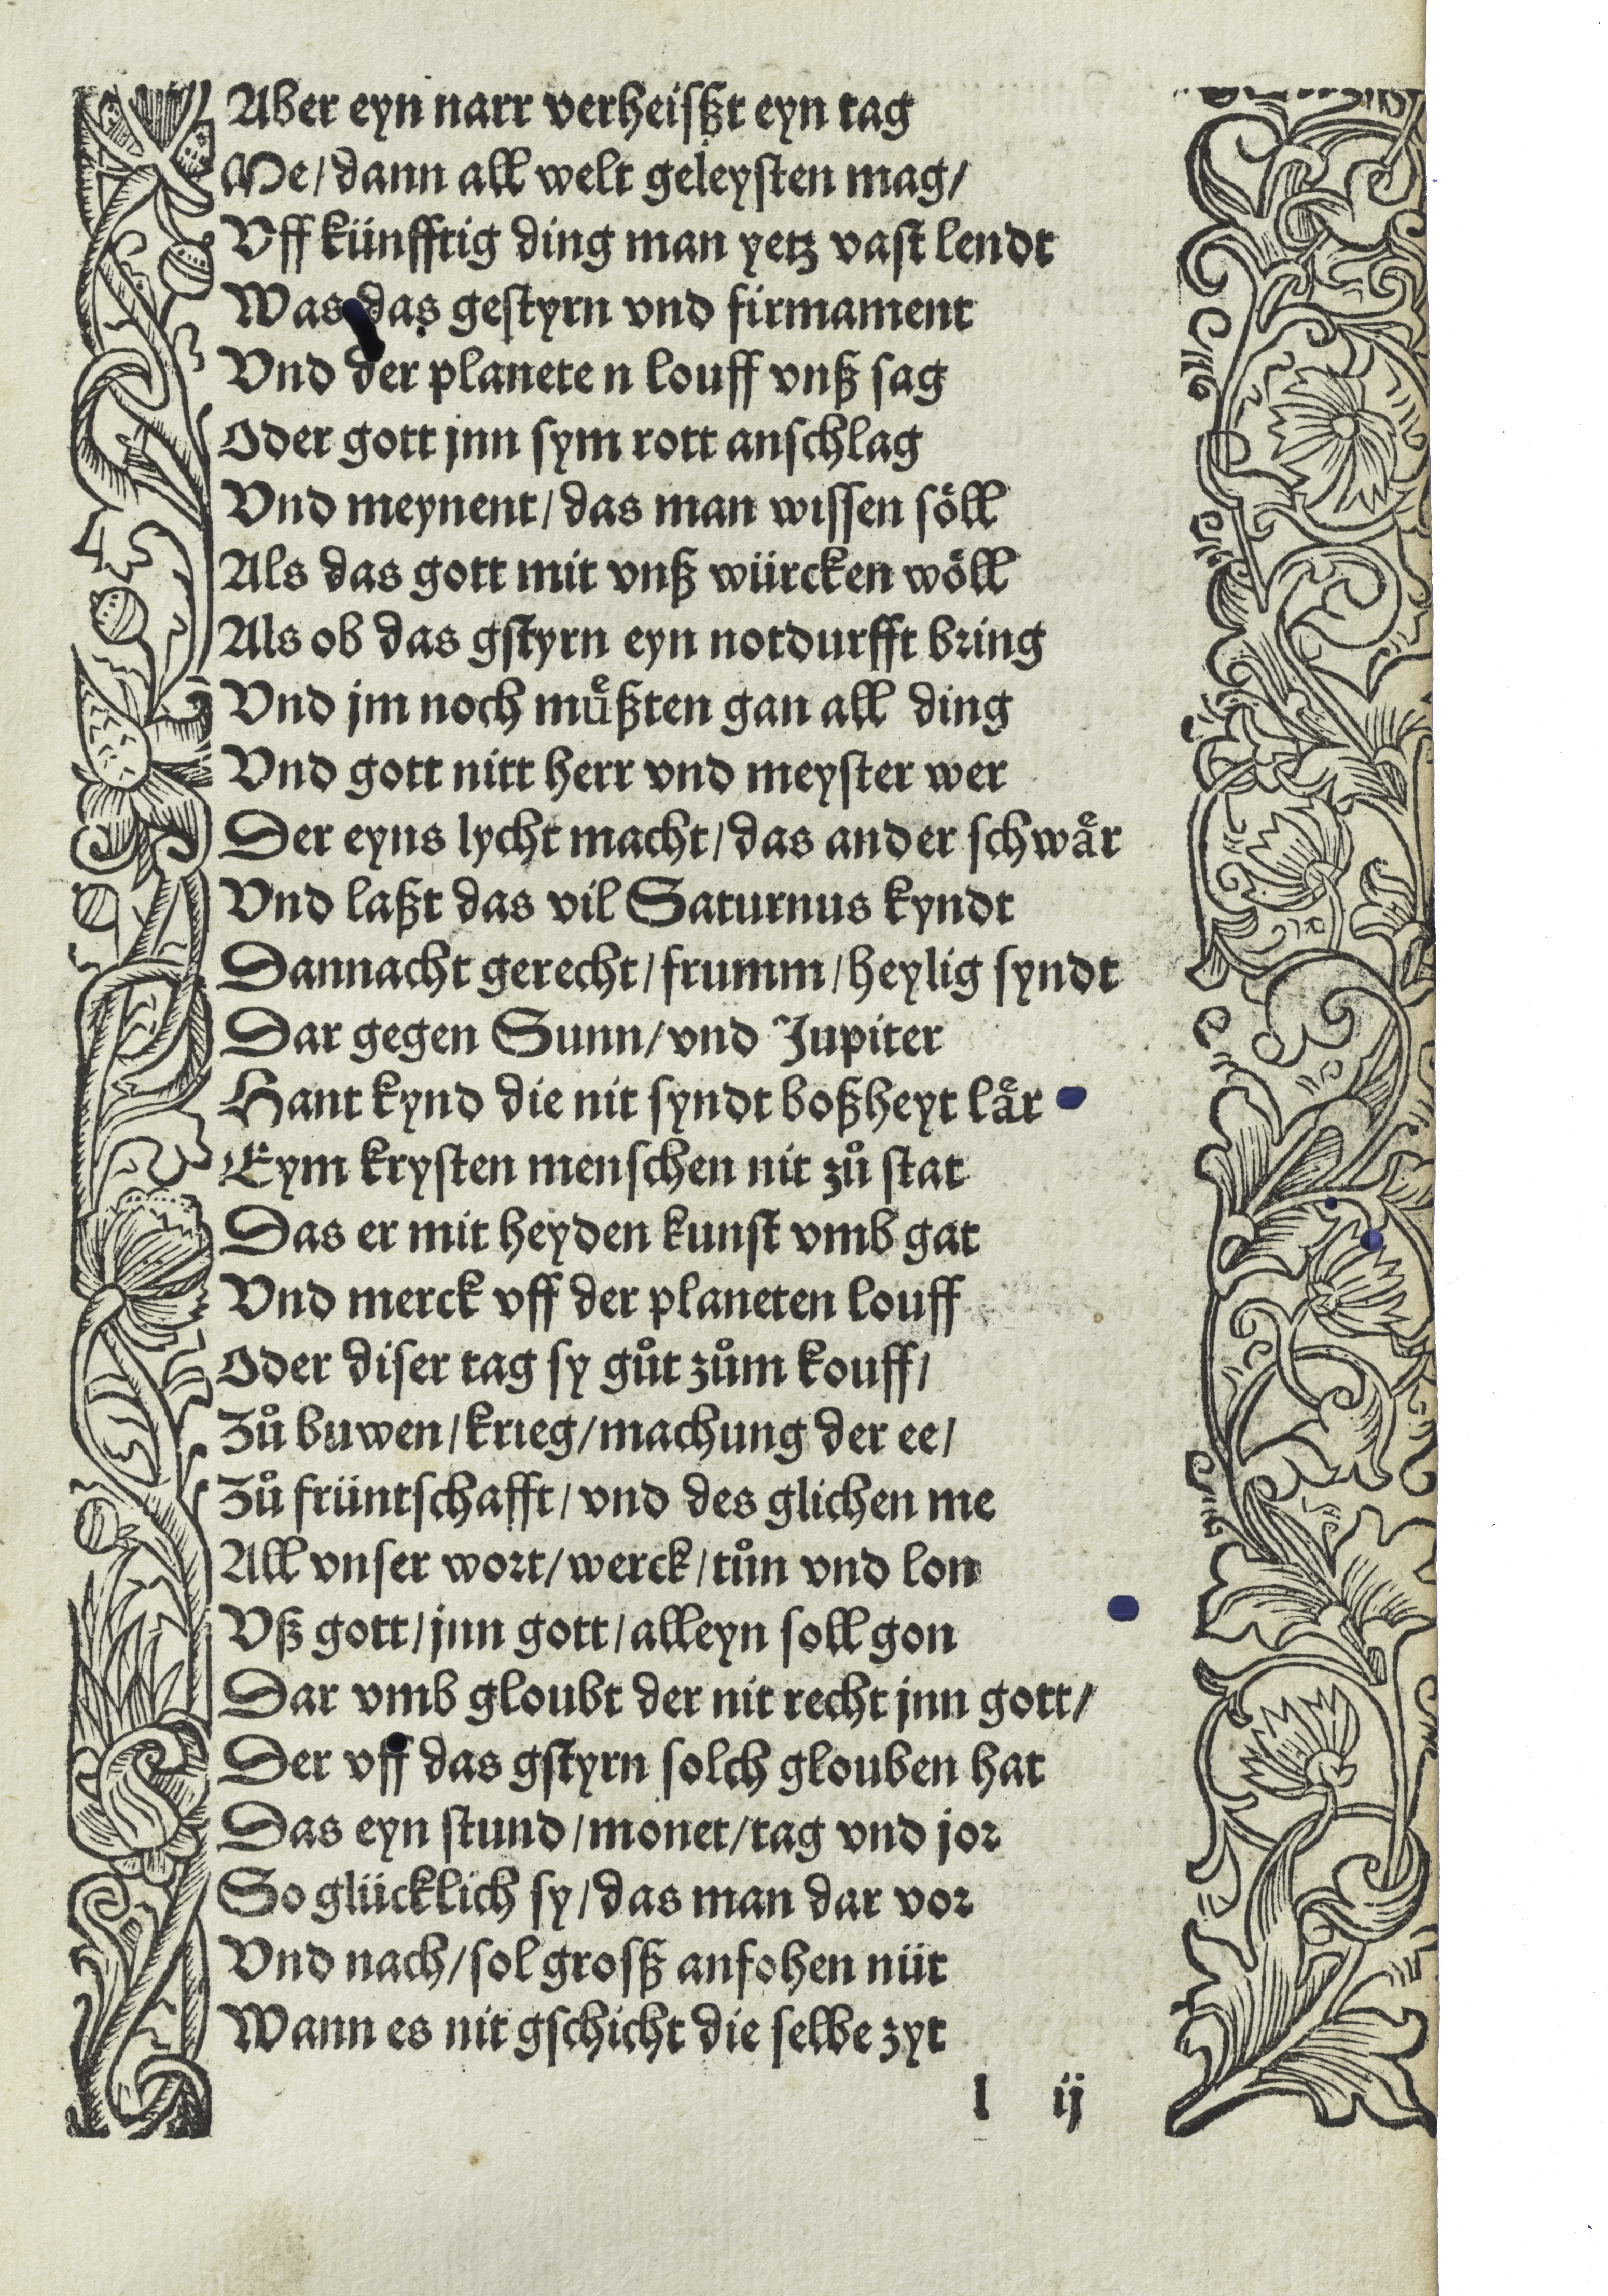 Aber eyn narr verheisßt eyn tag
Me/ dann all welt geleysten mag/
Vff künfftig ding man yetz vast lendt
Was das gestyrn vnd firmament
Vnd der planete n louff vnß sag
Oder gott jnn sym rott anschlag
Vnd meynent/ das man wissen söll
Als das gott mit vnß würcken wöll
Als ob das gstyrn eyn notdurfft bring
Vnd jm noch muͤßten gan all ding
Vnd gott nitt herr vnd meyster wer
Der eyns lycht macht/ das ander schwaͤr
Vnd laßt das vil Saturnus kyndt
Dannacht gerecht/ frumm/ heylig syndt
Dar gegen Sunn/ vnd Jupiter
Hant kynd die nit syndt boßheyt laͤr
Eym krysten menschen nit zuͦ stat
Das er mit heyden kunst vmb gat
Vnd merck vff der planeten louff
Oder diser tag sy guͦt zuͦm kouff/
Zuͦ buwen/ krieg/ machung der ee/
Zuͦ früntschafft/ vnd des glichen me
All vnser wort/ werck/ tuͦn vnd lon
Vß gott/ jnn gott/ alleyn soll gon
Dar vmb gloubt der nit recht jnn gott/
Der vff das gstyrn solch glouben hat
Das eyn stund/ monet/ tag vnd jor
So glücklich sy/ das man dar vor
Vnd nach/ sol grosß anfohen nüt
Wann es nit gschicht die selbe zyt
l ij